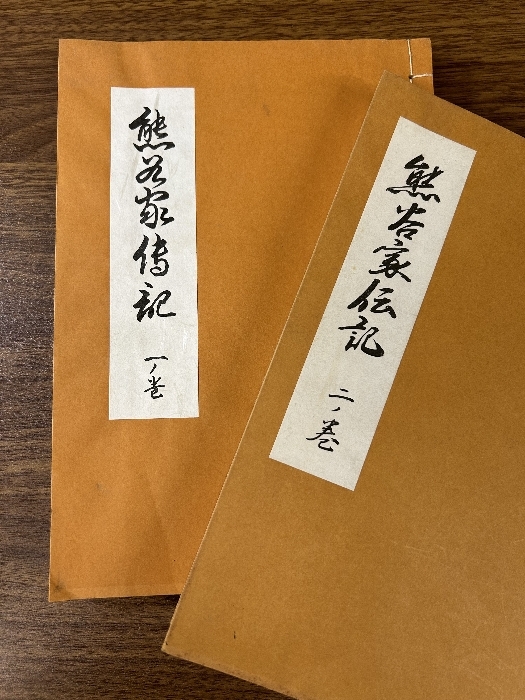 熊谷家傳記
一ノ巻
熊谷家伝記
二ノ巻